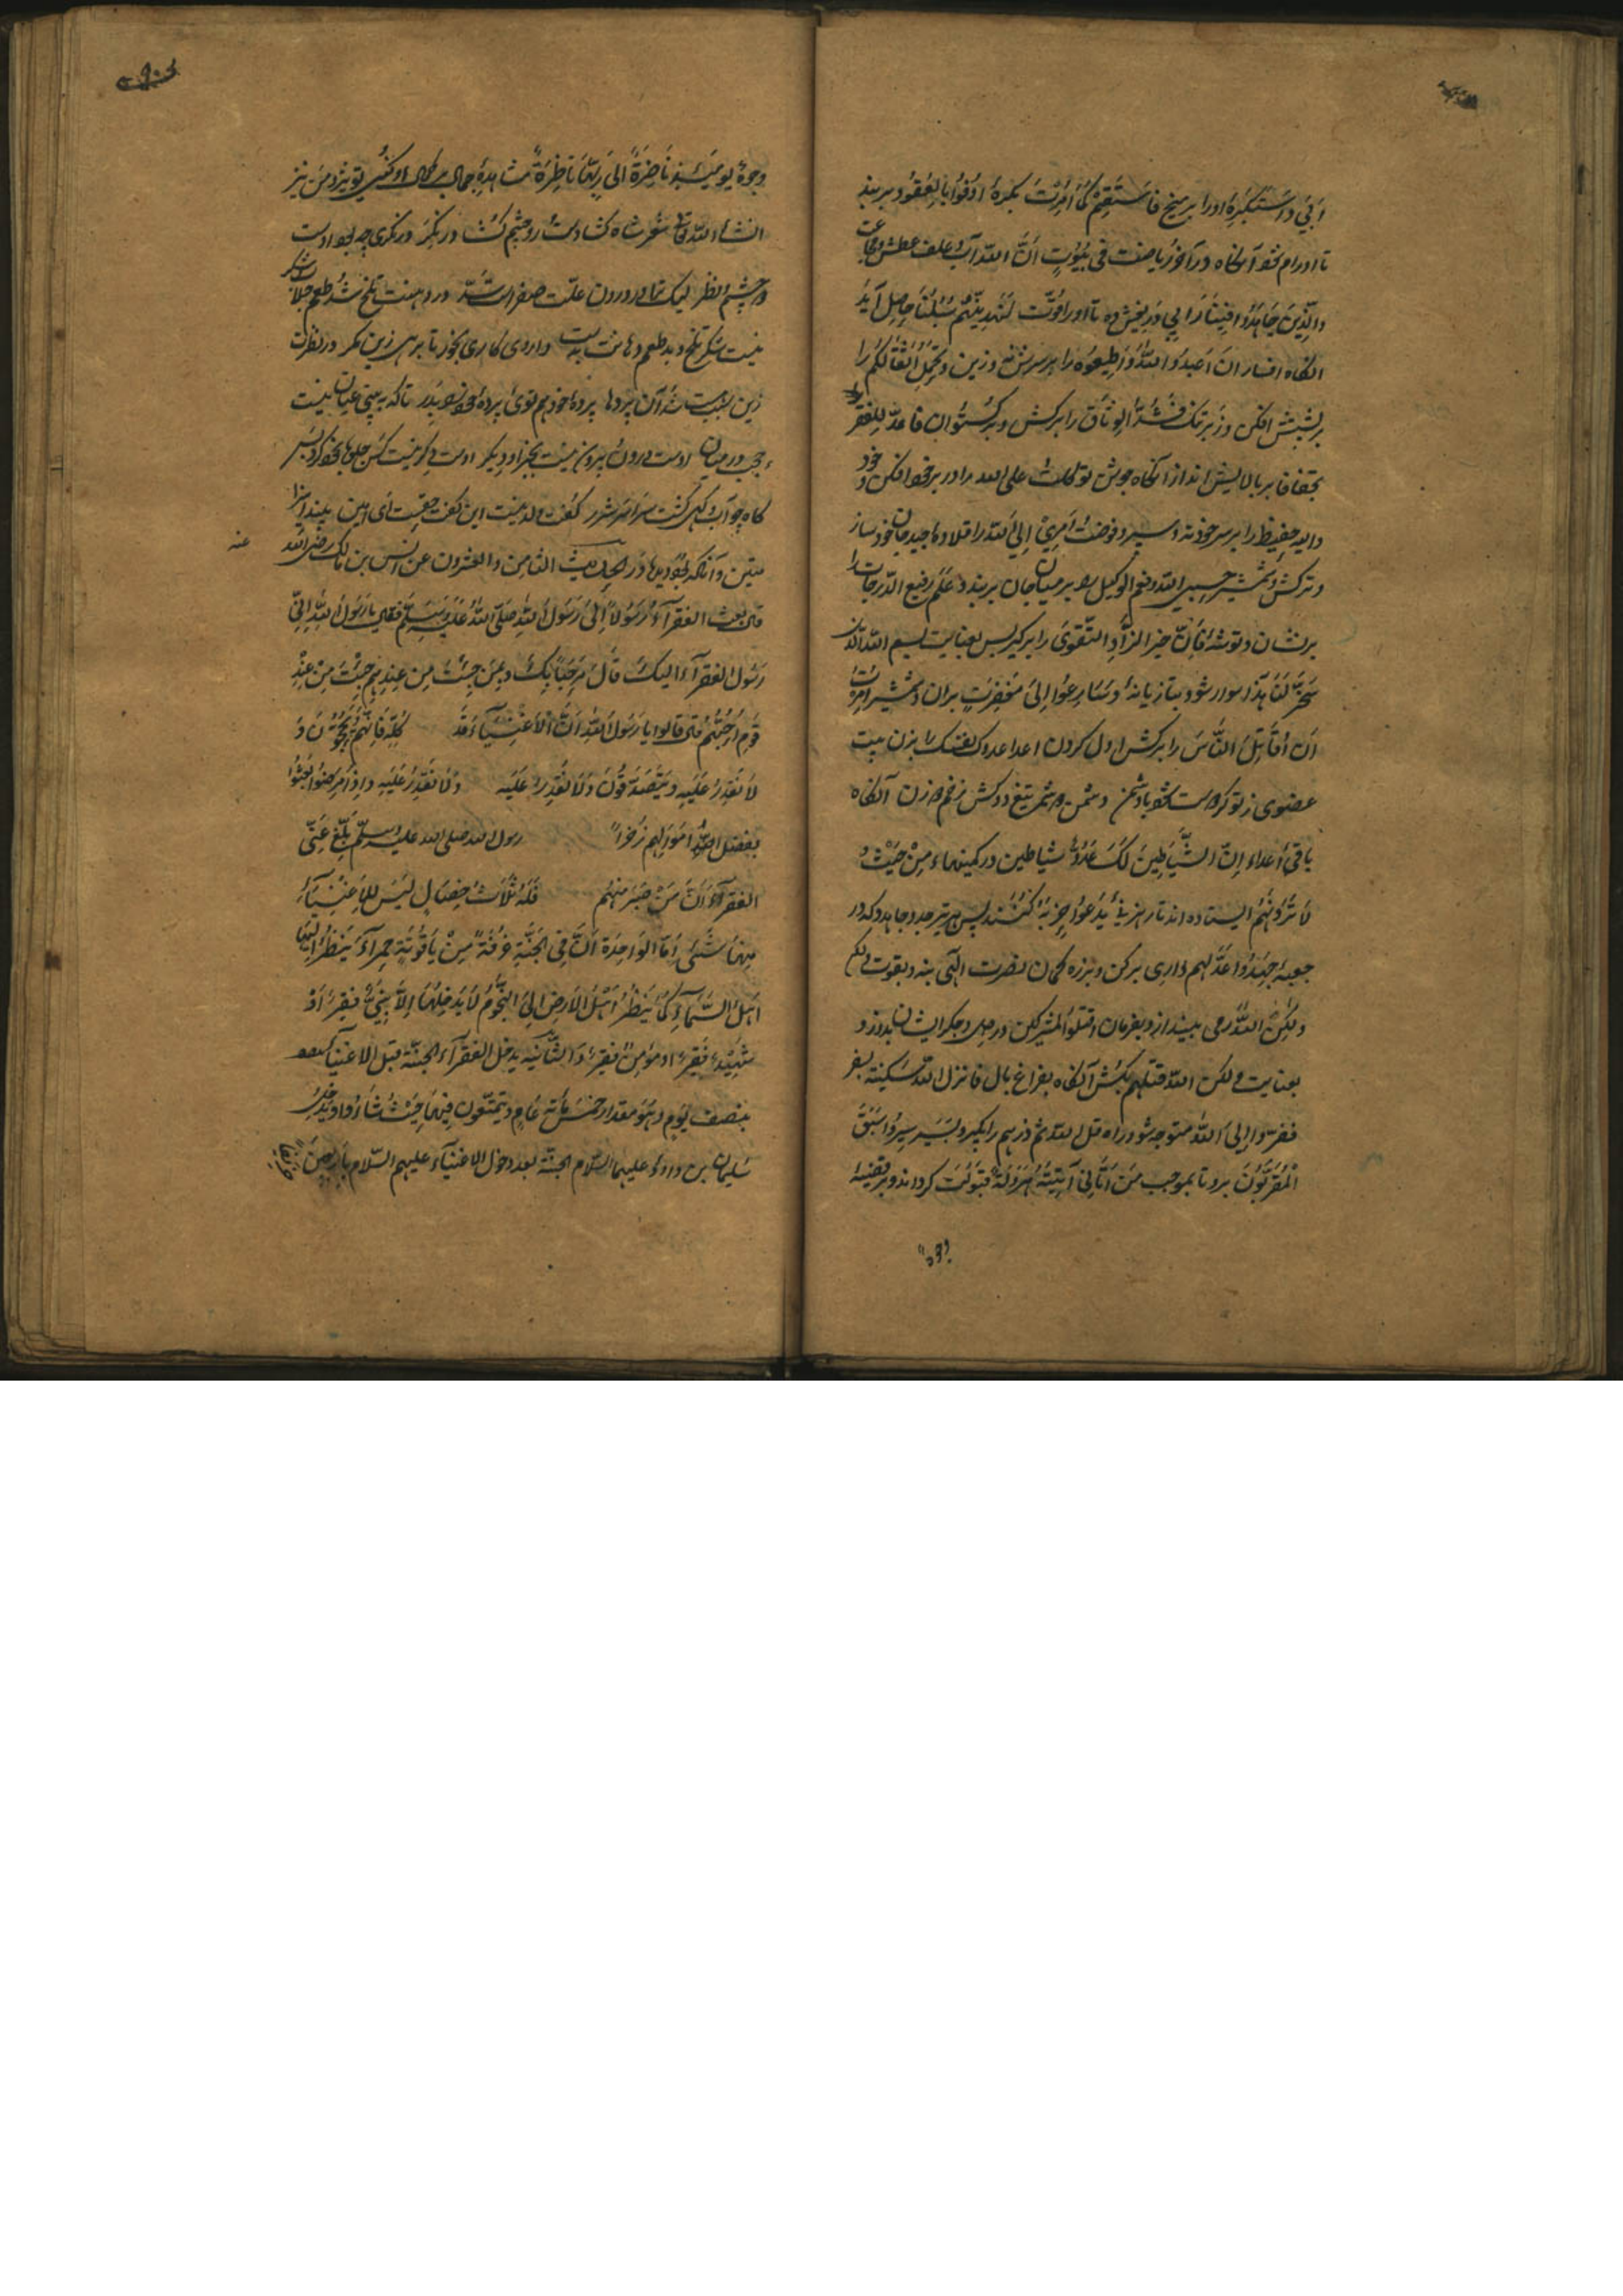 ابی و استکبره او را بر میخ فاستقم کما امرت بگره اوفوا بالعقود بر بند
تا او رام شود آنگاه در آخور ریاضت فی بیوت اذن الله آب و علف عطش و مجاعت
والذین جاهدوا فینا زابی و ریخش ده تا او را قوت لنهدینهم سبلنا حاصل آید
آنگاه افسار ان اعبدوا الله و اطیعوه را بر سرش نه و زین و تحمل اثقالکم را
بر پشتش افکن و زیر تنگ فشدوا الوثاق را برکش و برکستوان فاعد للفقر
تجفافا بر بالایش انداز آنگاه جوش توکلت علی الله را در بر خود افکن و خود
والله حفیظ را بر سر خود نه و سپر و فوضت امری الی الله را قلاده جید جان خود ساز
و ترکش و شمشیر حسبی الله و نعم الوکیل بر میان جان بر بند و علم رفیع الدرجات را
بر نشان و توشه فان خیر الزاد التقوی را برگیر پس بعنایت بسم الله الذی
سخر لنا هذا سوار شود بتازیانه و سارعوا الی مغفرت بران و شمشیر امرت
ان اقاتل الناس را برکش اول گردن اعدا عدوک نفسک را بزن بیت
عضوی ز تو گر دوست شود با دشمن دشمن دو شمر تیغ دو کش زخم دو زن آنگاه
باقی اعداء ان الشیاطین لک عدو شیاطین در کمینهاء من حیث
لا ترونهم ایستاده اند تا رهزنی یدعوا حزبه کنند پس هر تیر جد و جاهدوا که در
جعبه جهدوا اعد لهم داری برکن و بزره کمان نصرت الهی بنه و بقوت
ولکن الله رمی بینداز و بفرمان اقتلوا المشرکین در دل و جگر ایشان بدوز و
بعنایت ولکن الله قتلهم بکش آنگاه بفراغ بال فانزل الله سکینته بسفر
ففروا الی الله متوجه شو و راه قل الله ثم ذرهم را بگیر و بسیر سیروا سبق
المفردون برو تا بموجب من اتانی آتیته هرولة قبولت کرداند و بر قضیه
وجوه
وجوه یومئذ ناضرة الی ربها ناظرة مشاهده جمال بر کمال او کنی تو نیز و من نیز
انشاء الله تعالی شعر شاه کشادست رو چشم کشا در نکر ور نکری چه بود اوست
در چشم و نظر لیک ترا در درون علت صفراست شد در دهنت تلخ شد طعم جلاب و شکر
نیست شکر تلخ و بد طعم دهانت بدست داروی کاری بخور تا برهی زین مکر در نظرت
زین سبب بست شد آن پردها پرده خود هم توی پرده خود بدر تا که ببینی عیان نیست
حجب در میان اوست درون و برون نیست بجز او دگر اوست دگر نیست کس جلوها خود کرد بس
گاه چو آب و گهی گشت سراسر شرر گفت ولد نیست این گفت حقیست ای امین بیند اینرا
متین و آنکه بود دیدها ور الحدیث الثامن والعشرون عن انس بن مالک رضی الله عنه
قال بعث الفقرآء رسولا الی رسول الله صلی الله علیه وسلم فقال یا رسول الله انی
رسول الفقرآء الیک قال مرحبا بک و بمن جئت من عندهم جئت من عند
قوم احبهم قال قالوا یا رسول الله ان الاغنیاء قد کله فانهم یحجون و
لا نقدر علیه و یتصدقون ولا نقدر علیه ولا نقدر علیه و اذا مرضوا بعثوا
بفضل الله اموالهم ذخرا رسول الله صلی الله علیه وسلم بلغ عنی
الفقرآء ان من صبر منهم فله ثلاث خصال لیس للاغنیاء
منها شئی اما الواحدة ان فی الجنة غرفة من یاقوتة حمرآء ینظر الیها
اهل السماء کما ینظر اهل الارض الی النجوم لا یدخلها الا نبی فقیر او
شهید فقیر او مؤمن فقیر و الثانیه یدخل الفقرآء الجنة قبل الاغنیا
بنصف یوم و هو مقدار خمس مائة عام یتمتعون فیها حیث شاؤا و یدخل
سلیمان بن داود علیهما السلام الجنة بعد دخول الانبیآء علیهم السلام باربعین